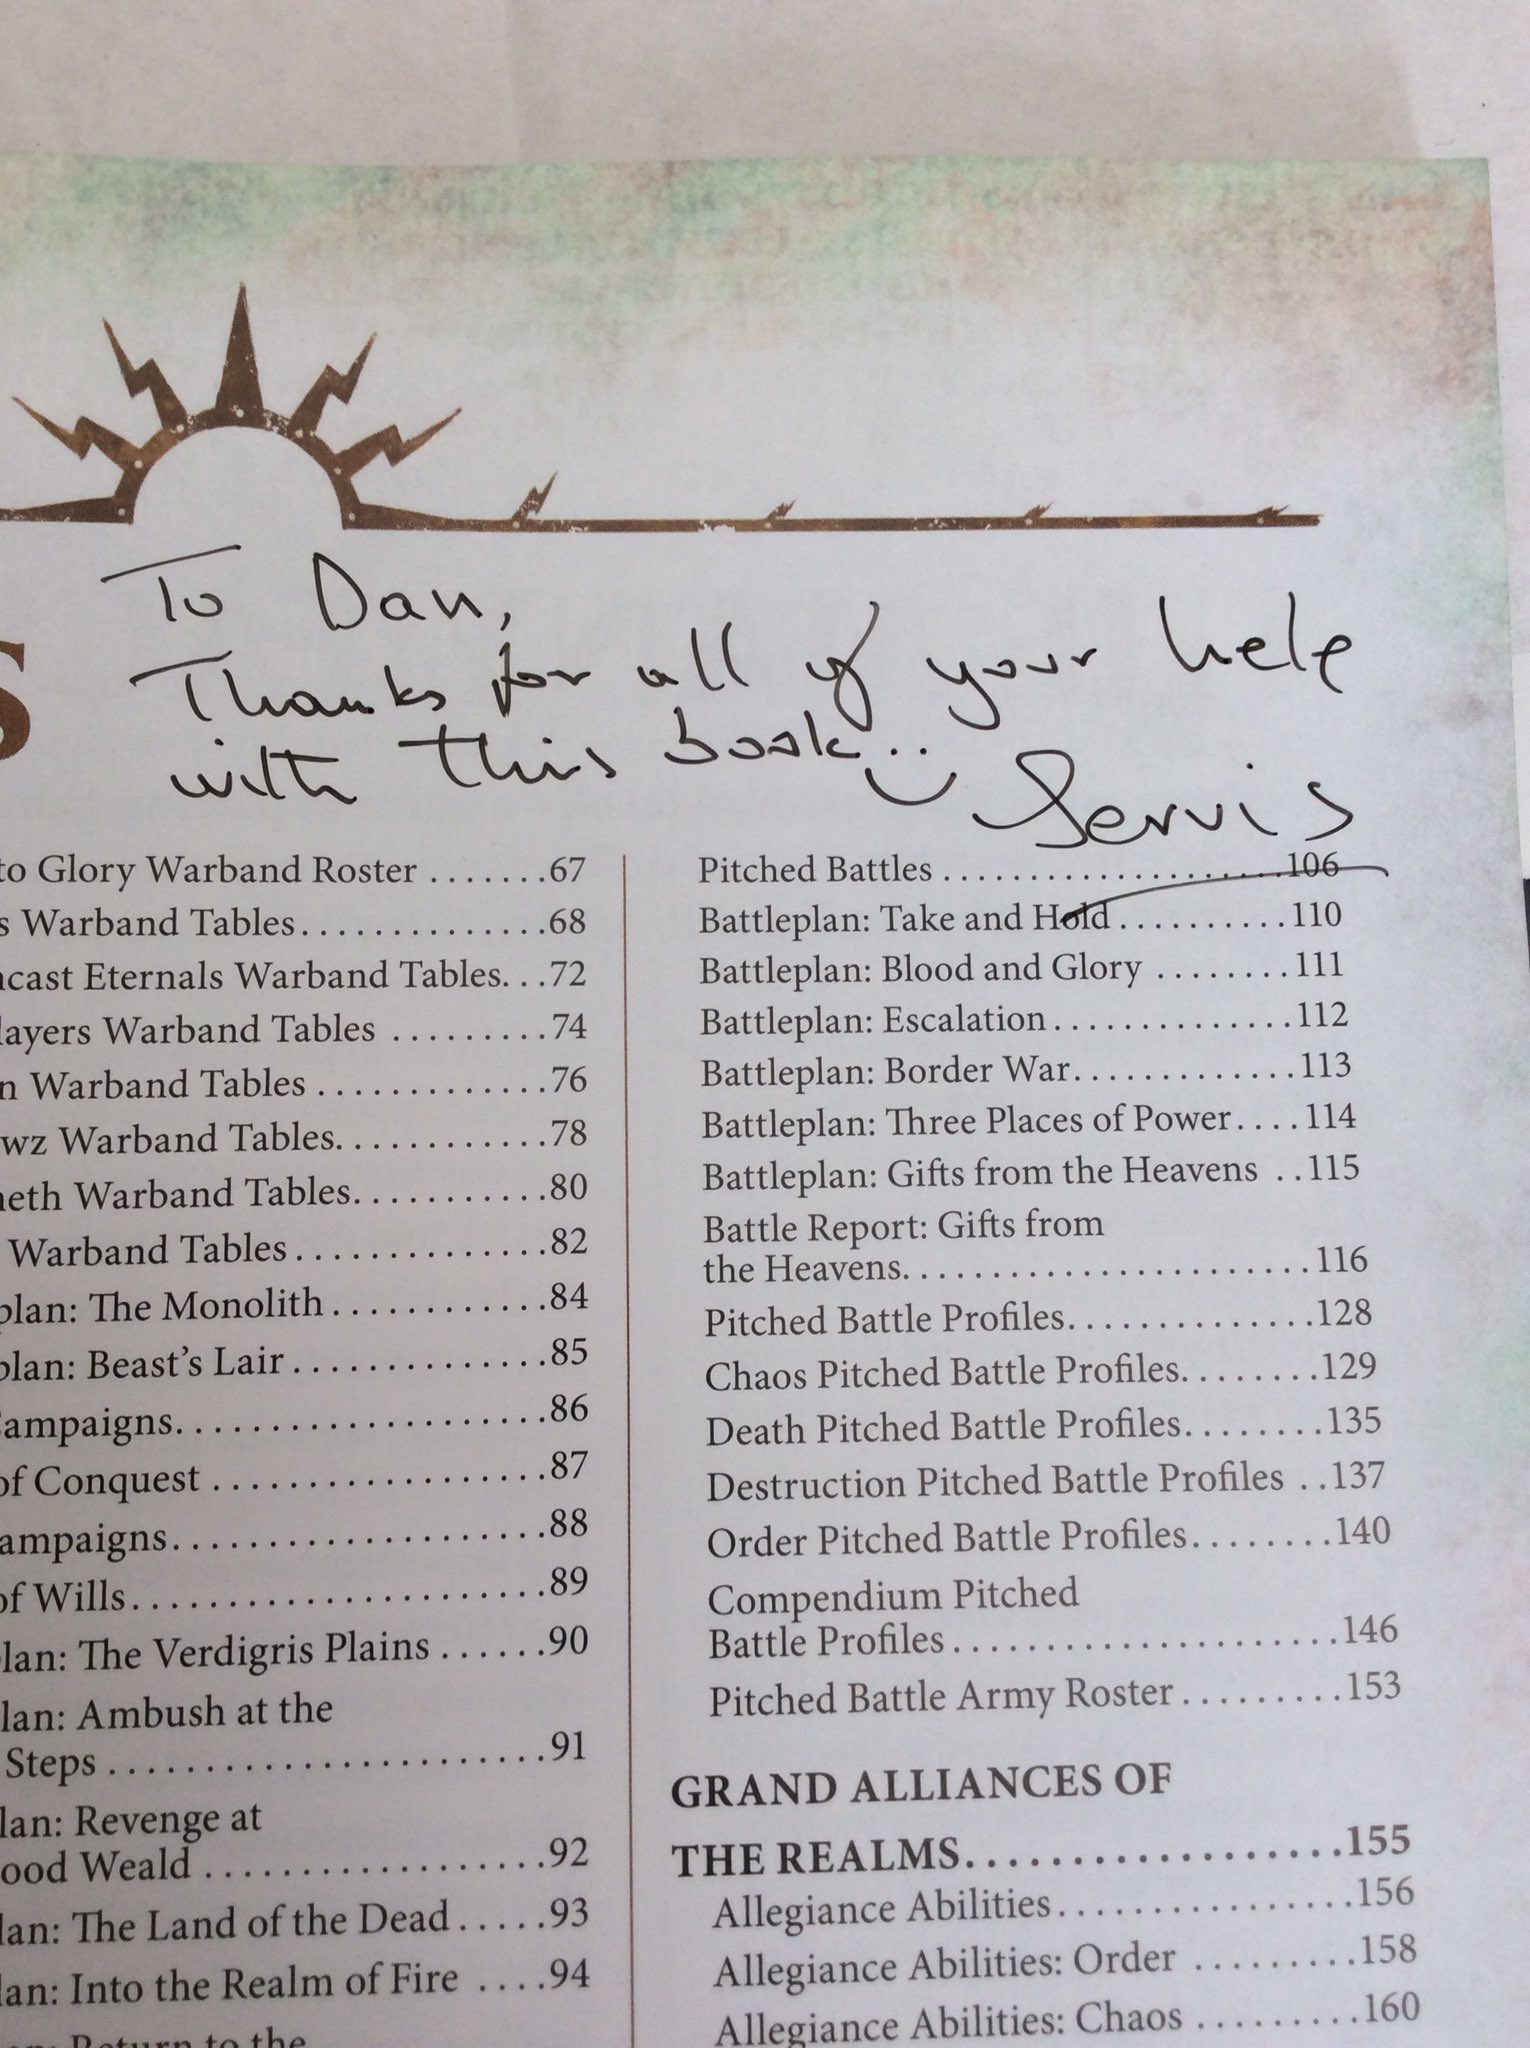 S
To Dan,
Thanks for all of your help
with this book..
Jervis
to Glory Warband Roster.......67
s Warband Tables..............68
ncast Eternals Warband Tables...72
layers Warband Tables .........74
n Warband Tables .............76
wz Warband Tables............78
neth Warband Tables...........80
Warband Tables...............82
plan: The Monolith............84
plan: Beast's Lair..............85
Campaigns...................86
of Conquest .................87
ampaigns....................88
of Wills......................89
lan: The Verdigris Plains ......90
lan: Ambush at the
Steps .......................91
lan: Revenge at
ood Weald ..................92
lan: The Land of the Dead.....93
lan: Into the Realm of Fire ....94
Return to the
Pitched Battles ....................106
Battleplan: Take and Hold..........110
Battleplan: Blood and Glory ........111
Battleplan: Escalation..............112
Battleplan: Border War.............113
Battleplan: Three Places of Power....114
Battleplan: Gifts from the Heavens ..115
Battle Report: Gifts from
the Heavens.......................116
Pitched Battle Profiles..............128
Chaos Pitched Battle Profiles........129
Death Pitched Battle Profiles........135
Destruction Pitched Battle Profiles ..137
Order Pitched Battle Profiles........140
Compendium Pitched
Battle Profiles.....................146
Pitched Battle Army Roster.........153
GRAND ALLIANCES OF
THE REALMS..................155
Allegiance Abilities................156
Allegiance Abilities: Order .........158
Allegiance Abilities: Chaos .........160